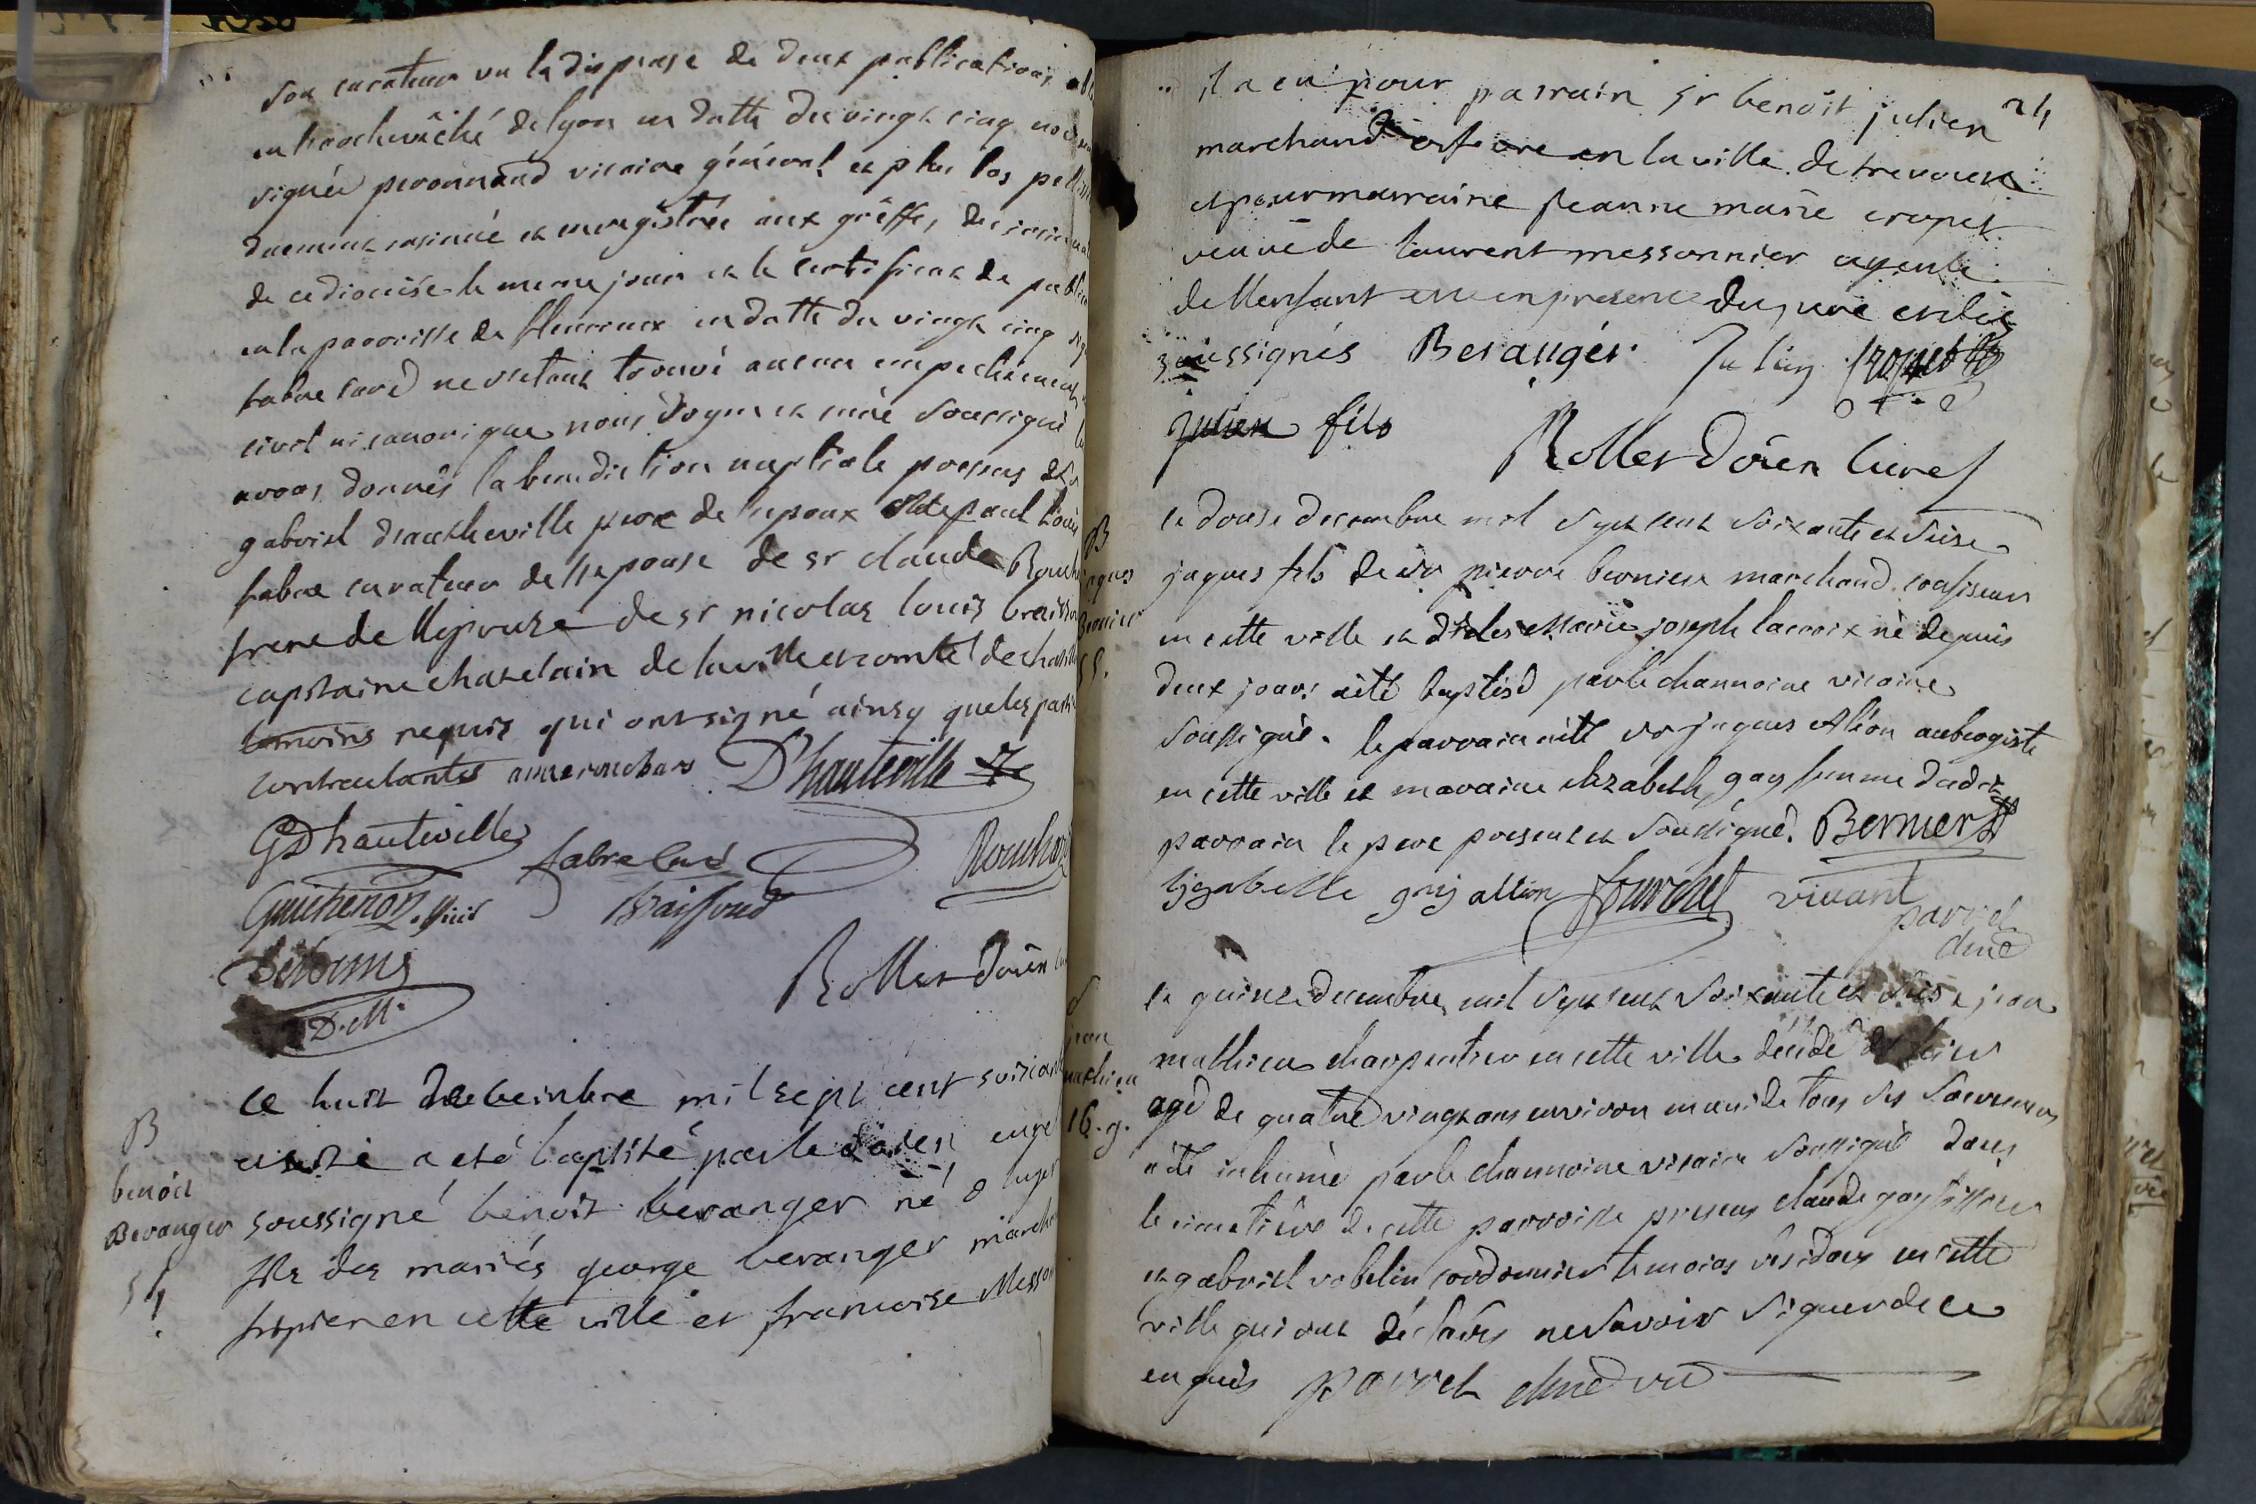 son curateur vu la dispense de deux publications
en l'archevêché de lyon en datte du vingt cinq
signée peronnaud vicaire général et plus bas
duement insinué et enregistrée aux greffes des
de ce diocèse le meme jour et le certificat de
en la parroisse de fleurieux en datte du vingt cinq
fabre curé ne s'etant trouvé aucun empechement
civil ni canonique nous Doyen et curé soussigné
avons donnés la benediction nuptiale presens
gabriel d'hauteville pere de l'epoux paul
fabre curateur de l'epouse de sr claude
frere de l'epouse de sr nicolas louis braissoud
capitaine chatelain de la ville et comté de
temoins requis qui ont signé ainsy que les
contractantes anne rouchard D'hauteville
GD hauteville fabre curé Rouchard
Guichenon braissoud
Rollet doïen
D.M.
B
benoit
Beranger
51
ce huit decembre mil sept cent
a eté baptisé par le doien
soussigné benoit beranger né
fils des mariés george beranger
fripier en cette ville et francoise
24
il a eu pour parrain sr benoit julien
marchand orfevre en la ville de trevoux
et pour marraine jeanne marie cropet
veuve de laurent messonnier ayeule
de l'enfant en presence du pere
soussignés Berangér Julien Cropet
julien fils
Rollet Doïen Curé
B
jaques
Bernier
55.
ce douse decembre mil sept cent soixante et seise
jaques fils de sr pierre bernier marchand confiseur
en cette ville et de marie joseph lacroix né depuis
deux jours a été baptisé par le channoine vicaire
soussigné. le parrain a été sr jaques Aléon aubergiste
en cette ville et maraine elizabeth gay femme dudit
parrain le pere present et soussigné. Bernier
gay allion fourchet vivant
parret
chne
jean
mathieu
16. g.
le quinse decembre mil sept cent soixante et seise jean
mathieu charpentier en cette ville décédé d'hier
agé de quatre vingt ans environ muni de tous ses sacremens
a été inhumé par le channoine vicaire soussigné dans
le cimetière de cette parroisse presens claude gay
et gabriel robelin cordonnier temoins résidans en cette
ville qui ont déclarés ne savoir signer de ce
enquis parret chne vic